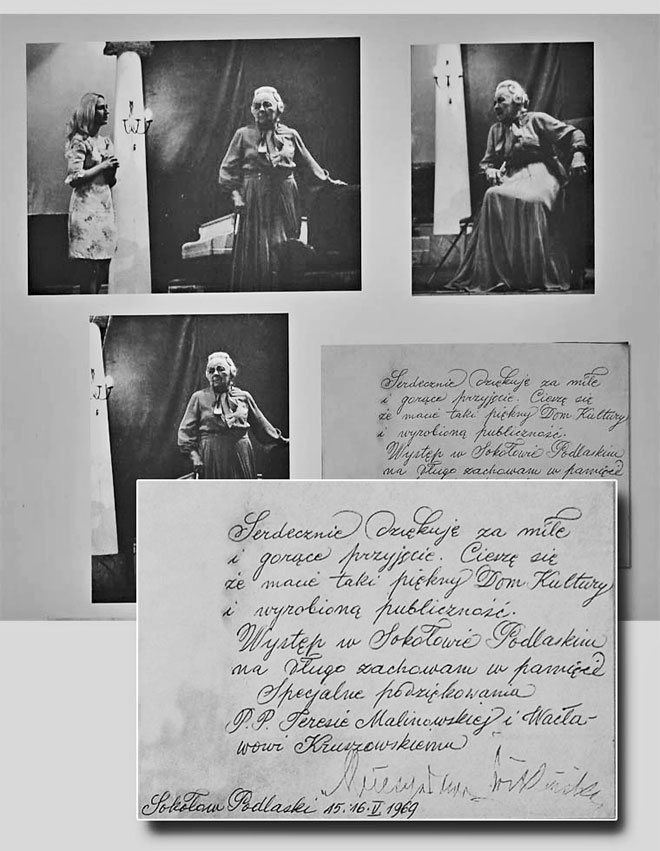 Serdecznie dziękuję za miłe
i gorące przyjęcie. Cieszę się
że macie taki piękny Dom Kultury
i wyrobioną publiczność.
Występ w Sokołowie Podlaskim
na długo zachowam w pamięci
Serdecznie dziękuję za miłe
i gorące przyjęcie. Cieszę się
że macie taki piękny Dom Kultury
i wyrobioną publiczność.
Występ w Sokołowie Podlaskim
na długo zachowam w pamięci
Specjalne podziękowania
P.P. Teresie Malinowskiej i Wacła-
wowi Kruszewskiemu
Sokołów Podlaski 15.16.II 1969